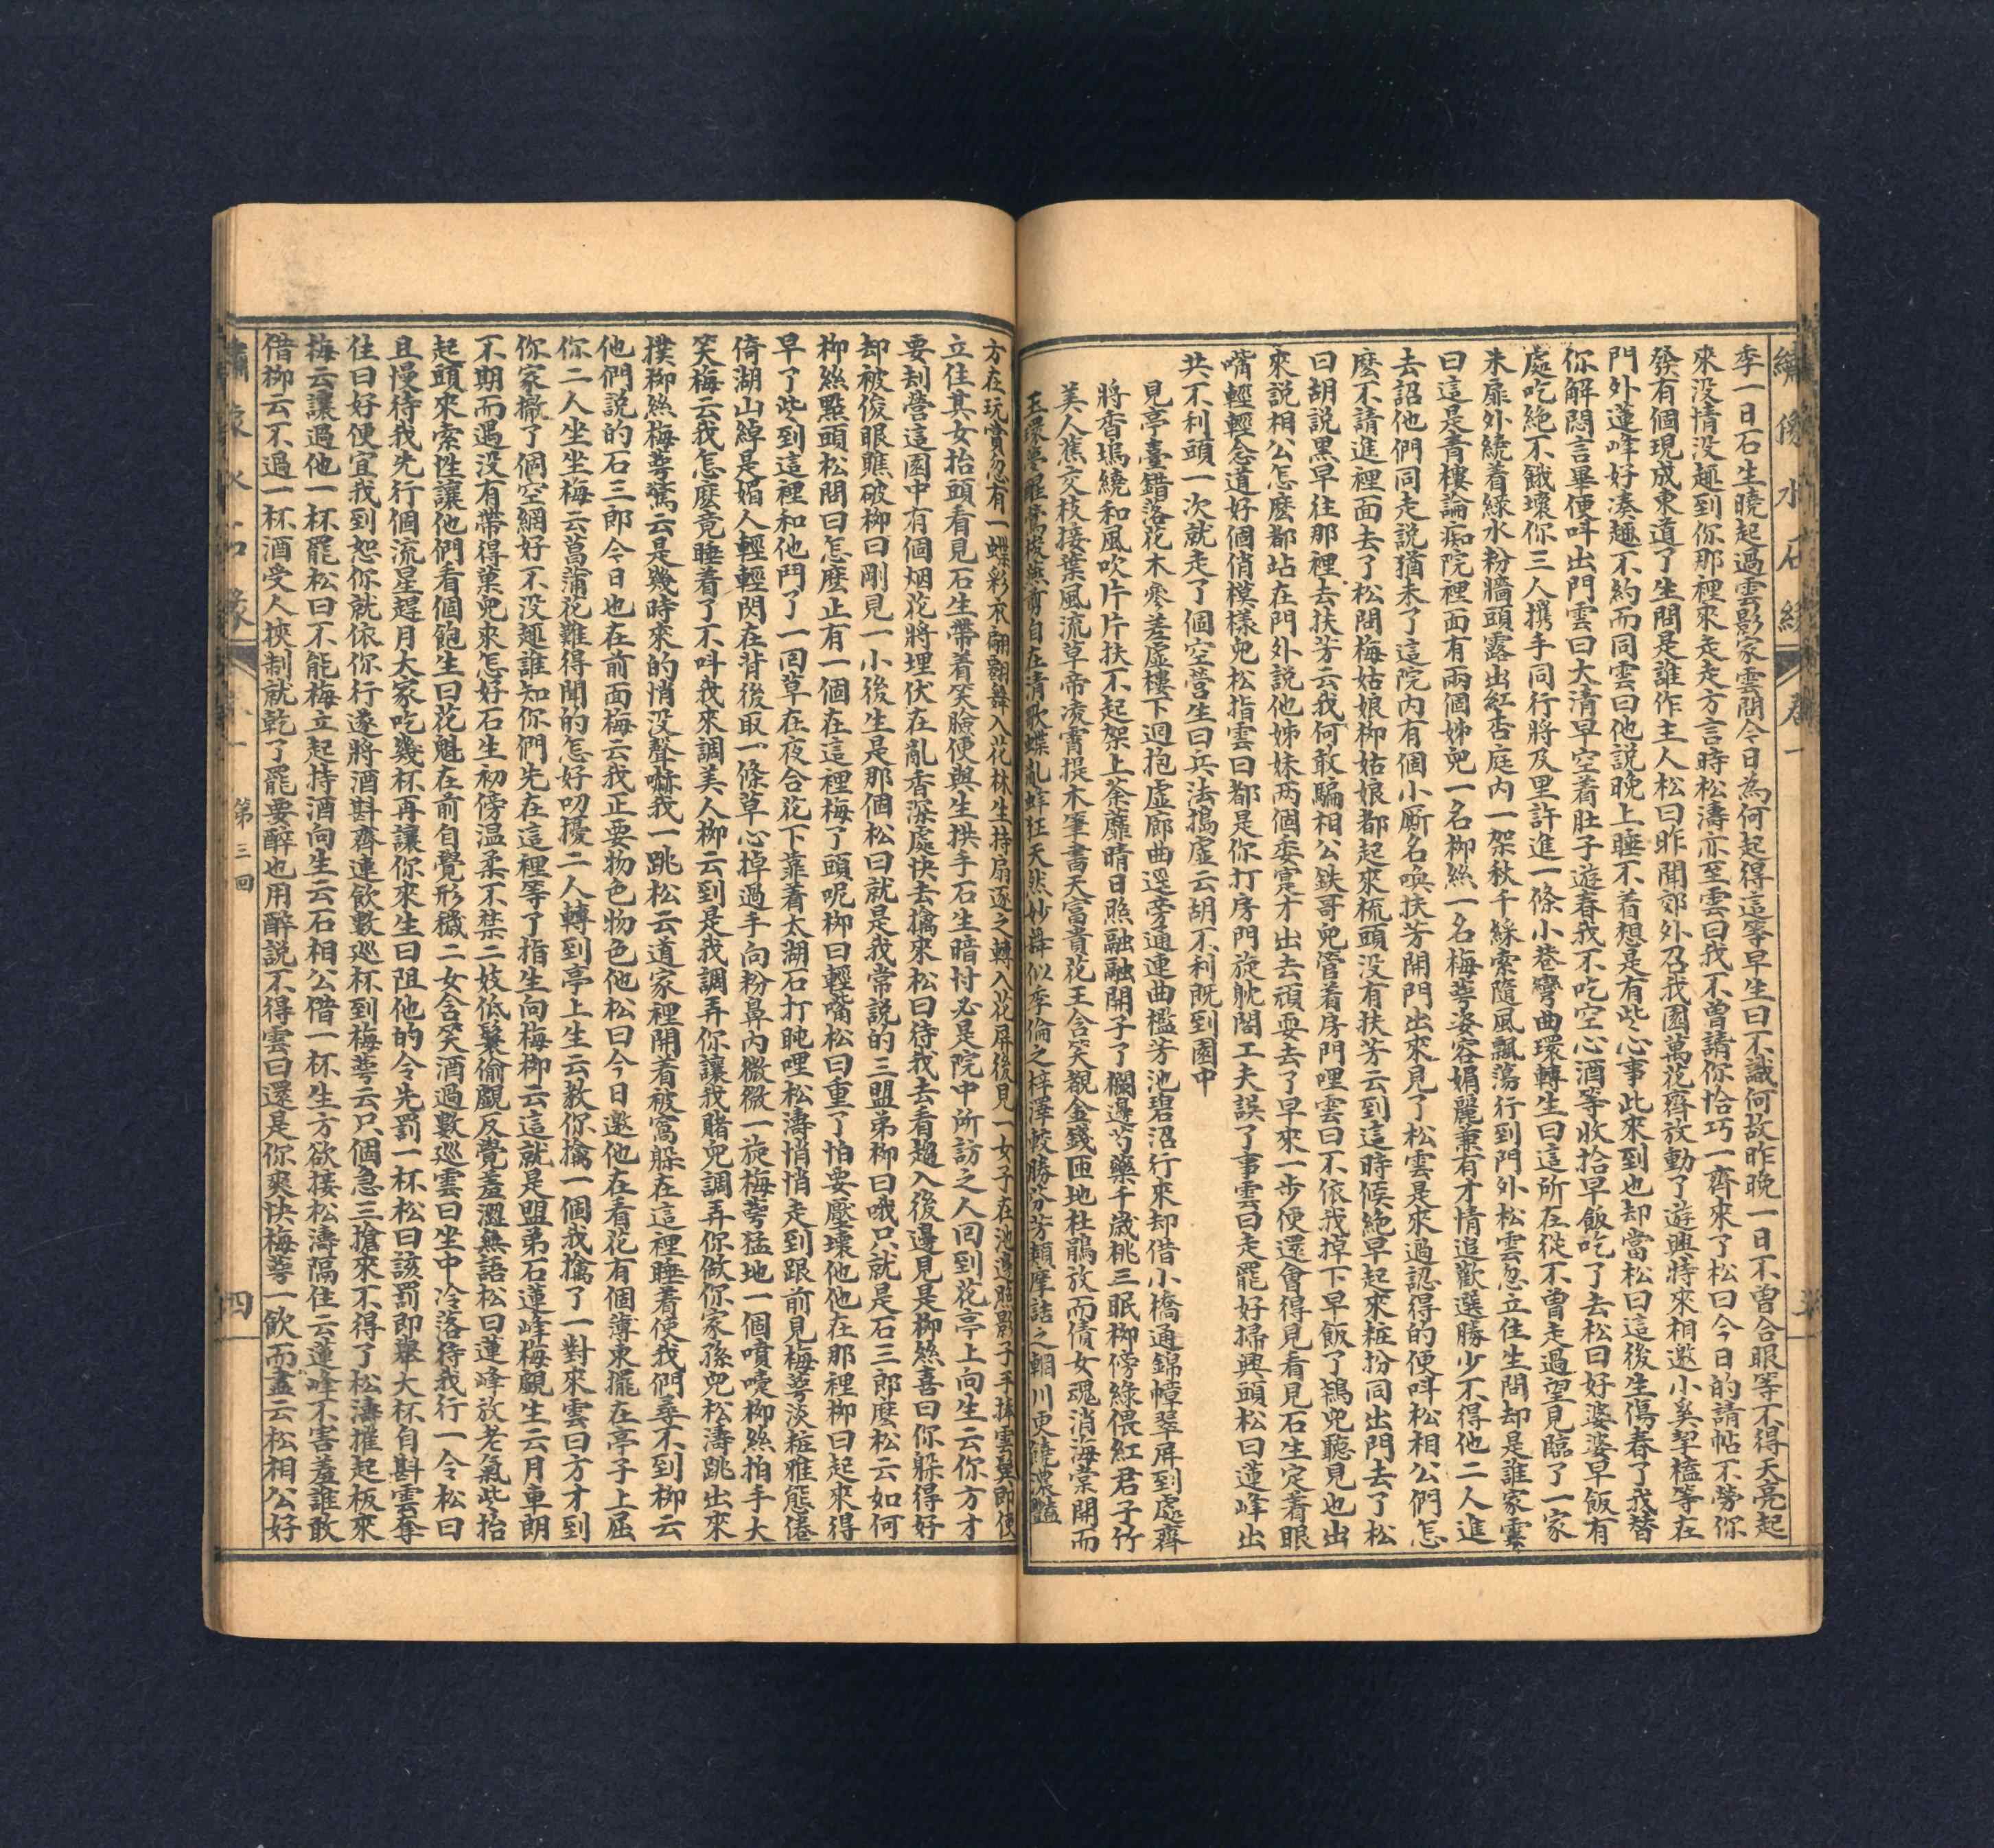 繡像水石緣 卷一
季一日石生曉起過雲影家雲問今日為何起得這等早生曰不識何故昨晚一日不曾合眼等不得天亮起
來没情没趣到你那裡來走走方言時松濤亦至雲曰我不曾請你恰巧一齊來了松曰今日的請帖不勞你
發有個現成東道了生問是誰作主人松曰昨聞郊外召我園萬花齊放動了遊興特來相邀小奚挈榼等在
門外蓮峰好湊趣不約而同雲曰他說晚上睡不着想是有些心事此來到也却當松曰這後生傷春了我替
你解悶言畢便呌出門雲曰大清早空着肚子遊春我不吃空心酒等收拾早飯吃了去松曰好婆婆早飯有
處吃絶不餓壞你三人攜手同行將及里許進一條小巷彎曲環轉生曰這所在從不曾走過望見臨了一家
朱扉外繞着綠水粉牆頭露出紅杏庭內一架秋千綵索隨風飄蕩行到門外松雲忽立住生問却是誰家雲
曰這是青樓論痴院裡面有兩個姊兒一名柳絲一名梅萼姿容娟麗兼有才情追歡選勝少不得他二人進
去詔他們同走說猶未了這院內有個小厮名喚扶芳開門出來見了松雲是來過認得的便呌松相公們怎
麽不請進裡面去了松問梅姑娘柳姑娘都起來梳頭没有扶芳云到這時候絶早起來粧扮同出門去了松
曰胡說黑早往那裡去扶芳云我何敢騙相公鉄哥兒管着房門哩雲曰不依我掉下早飯了鴇兒聽見也出
來說相公怎麽都站在門外說他姊妹两個委寔才出去頑耍去了早來一步便還會得見看見石生定着眼
嘴輕輕念道好個俏模樣兒松指雲曰都是你打房門旋躭閣工夫誤了事雲曰走罷好掃興頭松曰蓮峰出
共不利頭一次就走了個空營生曰兵法搗虛云胡不利既到園中
見亭臺錯落花木參差虛樓下迴抱虛廊曲逕旁通連曲檻芳池碧沼行來却借小橋通錦幛翠屏到處齊
將香塢繞和風吹片片扶不起架上荼蘼晴日照融融開子了欄邊芍藥千歲桃三眠柳傍綠偎紅君子竹
美人蕉交枝接葉風流草帝凌霄提木筆書天富貴花王含笑覩金錢匝地杜鵑放而倩女魂消海棠開而
玉環夢醒鶯梭燕剪自在清歌蝶亂蜂狂天然妙舞似季倫之梓澤較勝芬芳類摩詰之輞川更饒濃豔
方在玩賞忽有一蝶彩衣翩翩舞入花林生持扇逐之轉入花屏後見一女子在池邊照影子手捧雲鬟即便
立住其女抬頭看見石生帶着笑臉便與生拱手石生暗忖必是院中所訪之人回到花亭上向生云你方才
要刦營這園中有個烟花將埋伏在亂香深處快去擒來松曰待我去看趨入後邊見是柳絲喜曰你躲得好
却被俊眼瞧破柳曰剛見一小後生是那個松曰就是我常說的三盟弟柳曰哦只就是石三郎麽松云如何
柳絲點頭松問曰怎麽止有一個在這裡梅了頭呢柳曰輕嘴松曰重了怕要壓壞他他在那裡柳曰起來得
早了些到這裡和他鬥了一回草在夜合花下靠着太湖石打盹哩松濤悄悄走到跟前見梅萼淡粧雅態倦
倚湖山綽是媚人輕輕閃在背後取一條草心掉過手向粉鼻內微微一旋梅萼猛地一個噴嚏柳絲拍手大
笑梅云我怎麽竟睡着了不呌我來調美人柳云到是我調弄你讓我賭兒調弄你做你家孫兒松濤跳出來
撲柳絲梅萼驚云是幾時來的悄没聲嚇我一跳松云道家裡開着被窩躲在這裡睡着使我們尋不到柳云
他們說的石三郎今日也在前面梅云我正要物色物色他松曰今日邀他在看花有個薄東擺在亭子上屈
你二人坐坐梅云菖蒲花難得開的怎好叨擾二人轉到亭上生云教你擒一個我擒了一對來雲曰方才到
你家撒了個空網好不没趣誰知你們先在這裡等了指生向梅柳云這就是盟弟石蓮峰梅覷生云月車朗
不期而遇没有帶得菓兒來怎好石生初傍温柔不禁二妓低鬟偷覷反覺羞澀無語松曰蓮峰放老氣些抬
起頭來索性讓他們看個飽生曰花魁在前自覺形穢二女含笑酒過數巡雲曰坐中冷落待我行一令松曰
且慢待我先行個流星趕月大家吃幾杯再讓你來生曰阻他的令先罰一杯松曰該罰即舉大杯自斟雲奪
住曰好便宜我到恕你就依你行遂將酒斟齊連飲數巡杯到梅萼云只個急三搶來不得了松濤摧起板來
梅云讓過他一杯罷松曰不能梅立起持酒向生云石相公借一杯生方欲接松濤隔住云蓮峰不害羞誰敢
借柳云不過一杯酒受人挾制就乾了罷要醉也用醉說不得雲曰還是你爽快梅萼一飲而盡云松相公好
繡像水石緣 卷一 第三回 四